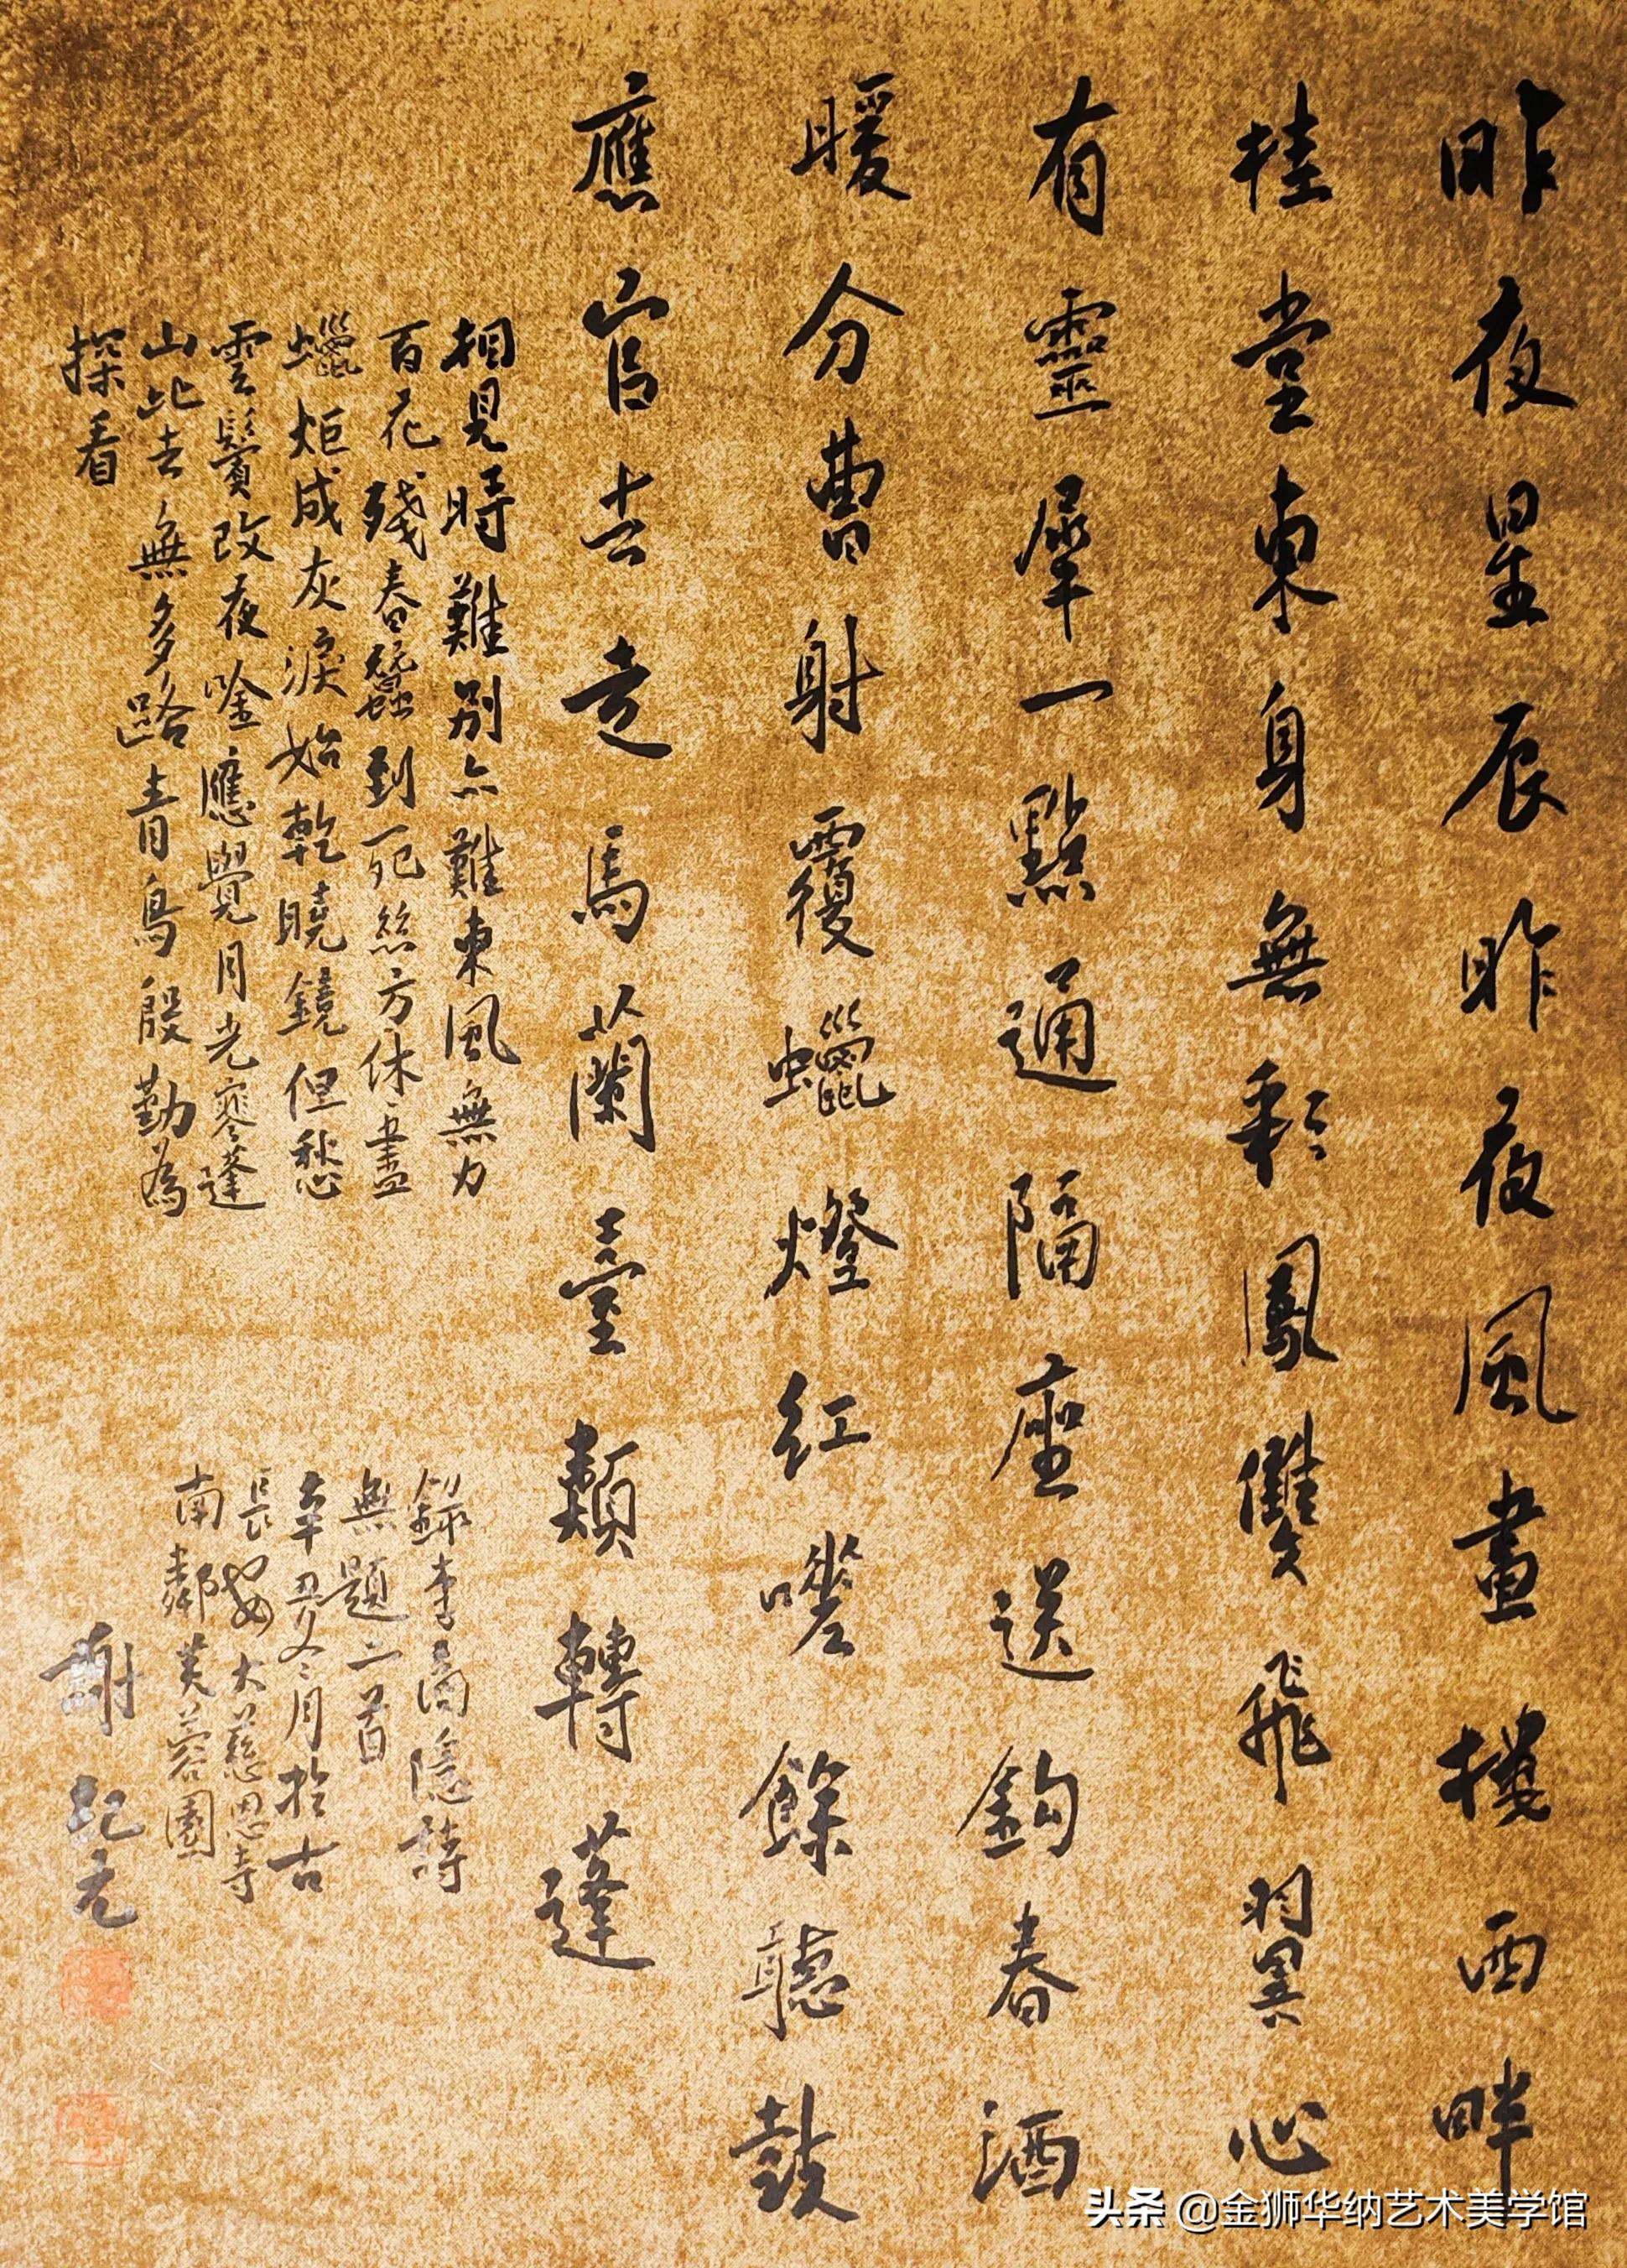 昨夜星辰昨夜風畫樓西畔
桂堂東身無彩鳳雙飛翼心
有靈犀一點通隔座送鈎春酒
暖分曹射覆蠟燈紅嗟餘聽鼓
應官去走馬蘭臺類轉蓬
相見時難別亦難東風無力
百花殘春蠶到死絲方休盡
蠟炬成灰淚始乾曉鏡但愁
雲鬢改夜唫應覺月光寒蓬
山此去無多路青鳥殷勤為
探看
錄李商隱詩
無題二首
辛丑冬月於古
長安大慈恩寺
南鄰芙蓉園
謝紀元
头条 @金狮华纳艺术美学馆